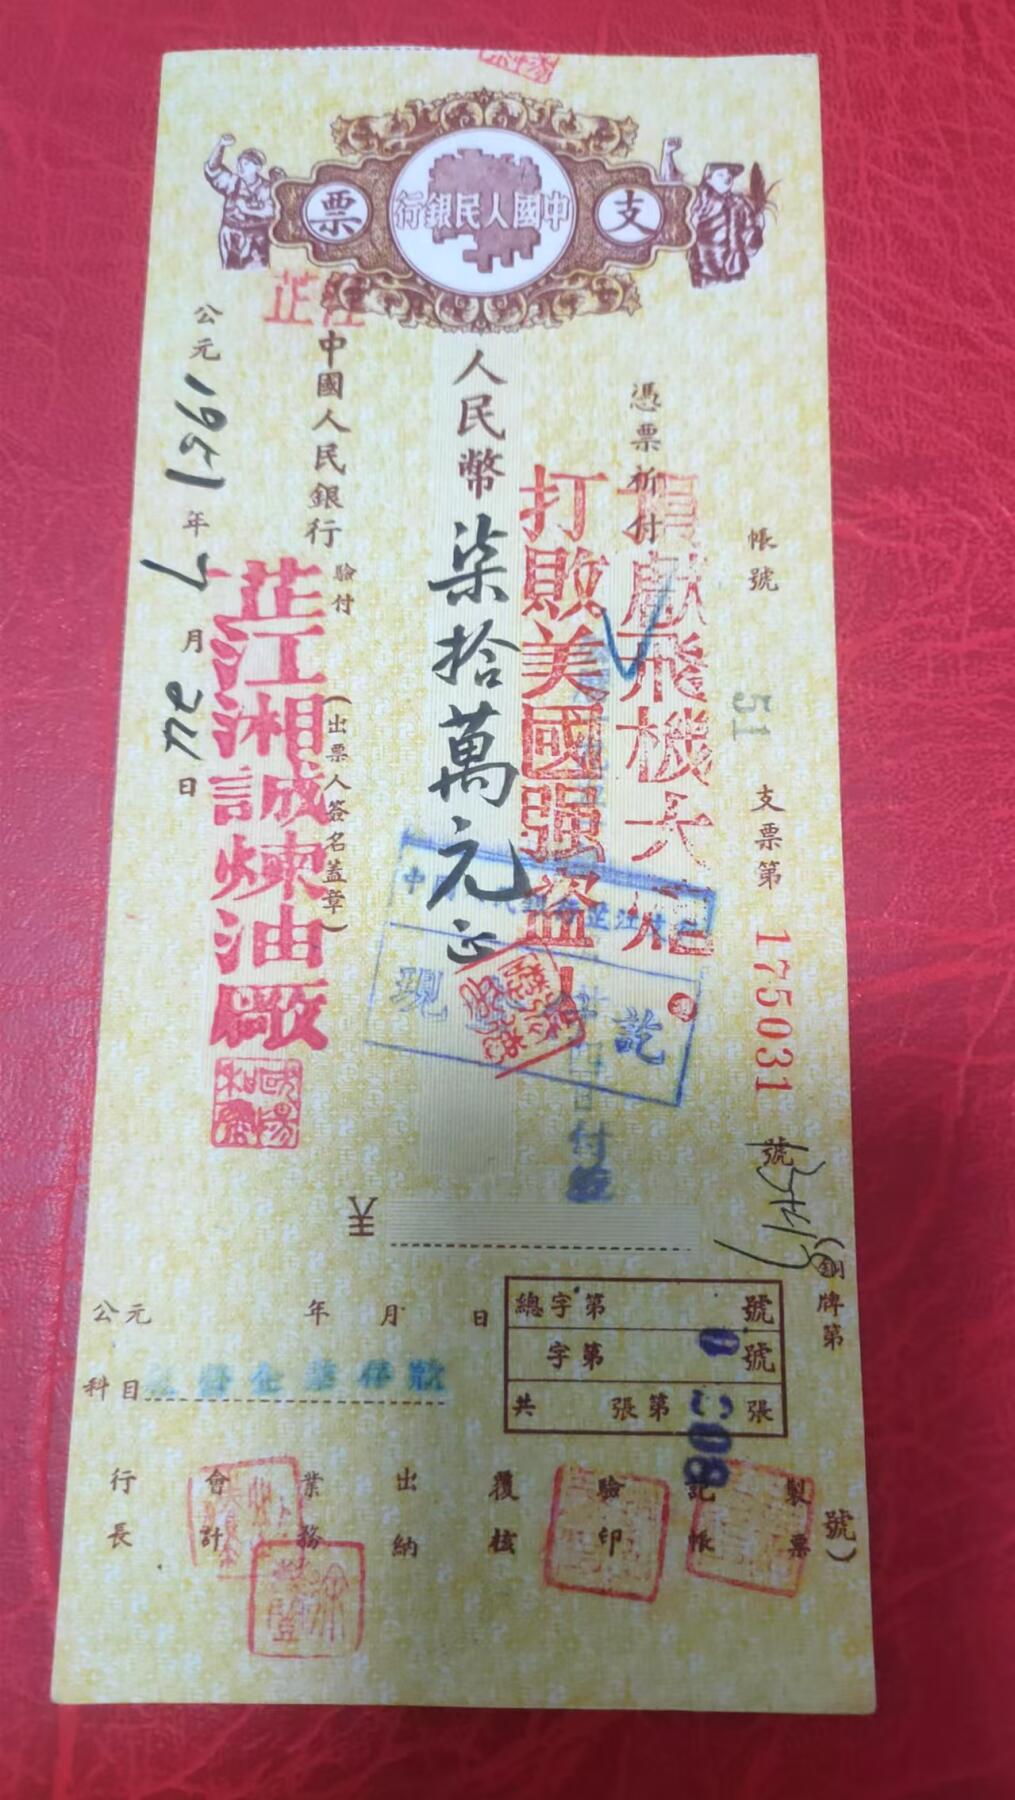 支
中國人民銀行
票
帳號 51
支票第 175031 號
(銅牌第 號)
憑票祈付
捐獻飛機大炮
打敗美國强盜
人民幣柒拾萬元正
現 訖
芷江
中國人民銀行 驗付
(出票人簽名蓋章)
芷江湘誠煉油廠
公元 年 月 日
總字第 號
字第 號
共 張第 張
公元 年 月 日
科目
製票
記帳
驗印
覆核
出納
業務
會計
行長